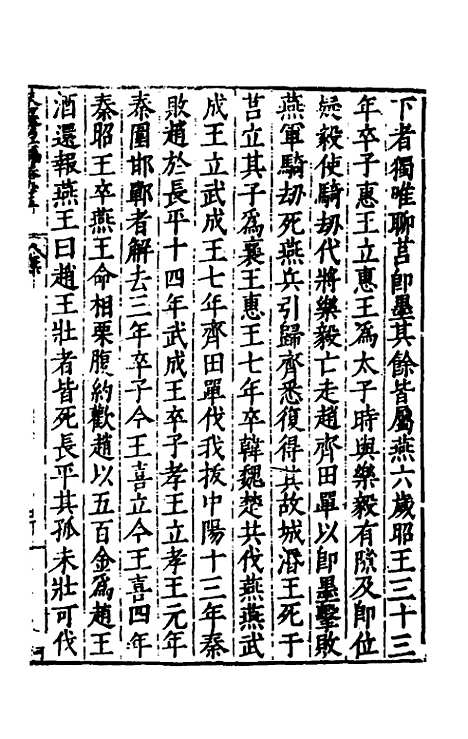 下者獨唯聊莒卽墨其餘皆屬燕六歲昭王三十三
年卒子惠王立惠王爲太子時與樂毅有隙及卽位
疑毅使騎刼代將樂毅亡走趙齊田單以卽墨擊敗
燕軍騎刼死燕兵引歸齊悉復得其故城湣王死于
莒立其子爲襄王惠王七年卒韓魏楚共伐燕燕武
成王立武成王七年齊田單伐我拔中陽十三年秦
敗趙於長平十四年武成王卒子孝王立孝王元年
秦圍邯鄲者解去三年卒子今王喜立今王喜四年
秦昭王卒燕王命相栗腹約歡趙以五百金爲趙王
酒還報燕王曰趙王壯者皆死長平其孤未壯可伐